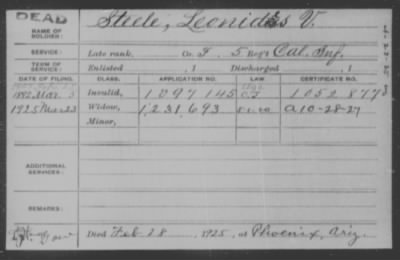 DEAD
NAME OF SOLDIER: Steele, Leonidas V.
SERVICE: Late rank, Co. F, 5 Reg't Cal. Inf.
TERM OF SERVICE: Enlisted , 1 Discharged , 1
DATE OF FILING. CLASS. APPLICATION NO. LAW CERTIFICATE NO.
Mar. 5 Invalid, 1097145 1052877
1925 Mar 23 Widow, 1,231,693 A10-28-27
Minor,
ADDITIONAL SERVICES:
REMARKS:
Died Feb 28, 1925, at Phoenix, Ariz.